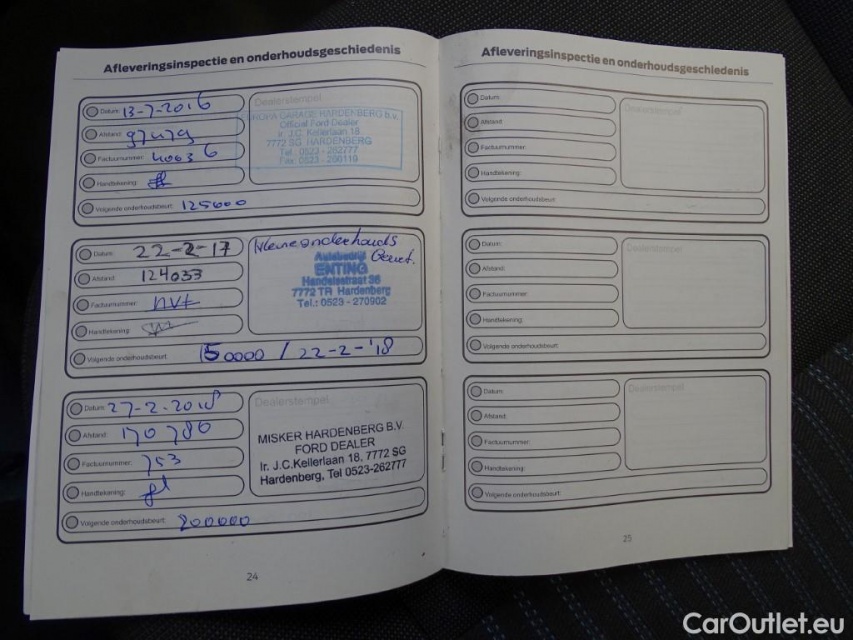 Afleveringsinspectie en onderhoudsgeschiedenis
Datum: 13-7-2016
Afstand:
Factuurnummer: 40036
Handtekening:
Volgende onderhoudsbeurt: 125000
Dealerstempel
GARAGE HARDENBERG b.v.
Official Ford Dealer
Ir. J.C. Kellerlaan 18
7772 SG HARDENBERG
Tel. 0523-262777
Fax. 0523-266119
Datum: 22-2-17
Afstand: 124033
Factuurnummer: nvt
Handtekening:
Volgende onderhoudsbeurt: 150000 / 22-2-'18
Kleine onderhouds
Beurt.
Autobedrijf
ENTING
Handelsstraat 36
7772 TR Hardenberg
Tel.: 0523 - 270902
Datum: 27-2-2018
Afstand: 170786
Factuurnummer: 753
Handtekening:
Volgende onderhoudsbeurt: 200000
Dealerstempel
MISKER HARDENBERG B.V.
FORD DEALER
Ir. J.C.Kellerlaan 18. 7772 SG
Hardenberg, Tel 0523-262777
24
Afleveringsinspectie en onderhoudsgeschiedenis
Datum:
Afstand:
Factuurnummer:
Handtekening:
Volgende onderhoudsbeurt:
Dealerstempel
Datum:
Afstand:
Factuurnummer:
Handtekening:
Volgende onderhoudsbeurt:
Dealerstempel
Datum:
Afstand:
Factuurnummer:
Handtekening:
Volgende onderhoudsbeurt:
Dealerstempel
25
CarOutlet.eu